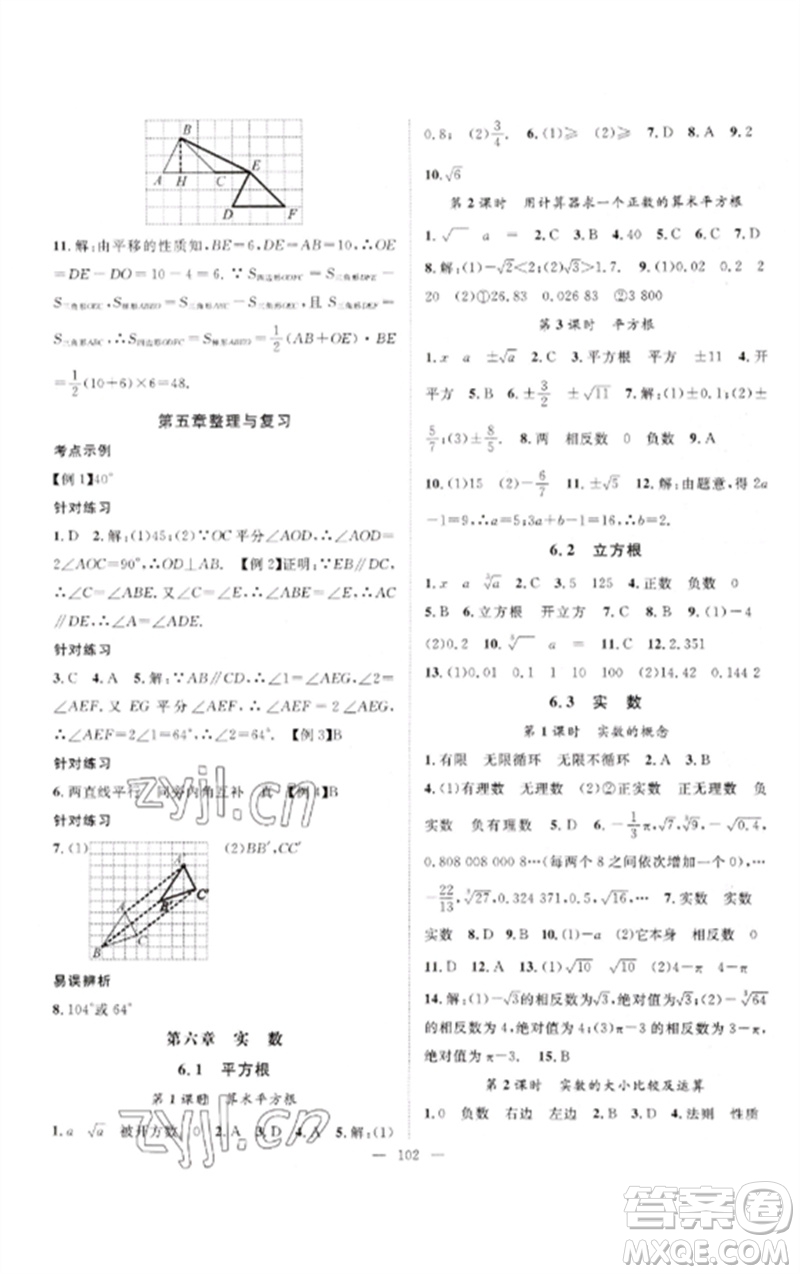 B
A H C E
D F
11.解:由平移的性质知,BE=6,DE=AB=10,∴OE
=DE-DO=10-4=6. ∵S四边形ODFC=S三角形DFE-
S三角形OEC,S梯形ABEO=S三角形ABC-S三角形OEC,且 S三角形DEF=
S三角形ABC,∴S四边形ODFC=S梯形ABEO=1/2(AB+OE)·BE
=1/2(10+6)×6=48.
第五章整理与复习
考点示例
【例1】40°
针对练习
1.D 2.解:(1)45;(2)∵OC平分∠AOD,∴∠AOD=
2∠AOC=90°,∴OD⊥AB. 【例2】证明:∵EB∥DC,
∴∠C=∠ABE. 又∵∠C=∠E,∴∠E=∠ABE,∴AC
∥DE,∴∠A=∠ADE.
针对练习
3.C 4.A 5.解:∵AB∥CD,∴∠1=∠AEG,∠2+
∠AEF. 又 EG 平分∠AEF,∴∠AEG=∠GEF=
∠1=64°,∴∠2=64°. 【例3】B
针对练习
6.两直线平行 同旁内角互补 真 【例4】B
针对练习
7.(1) (2)BB′,CC′
A′
B′ C′
A
B C
易误辨析
8.104°或64°
第六章 实 数
6.1 平方根
第1课时 算术平方根
1.a √a 被开方数 0 2.A 3.D 4.A 5.解:(1)
0.8;(2)3/4. 6.(1)⩾ (2)⩾ 7.D 8.A 9.2
10.√6
第2课时 用计算器求一个正数的算术平方根
1.√ a = 2.C 3.B 4.40 5.B 6.C 7.D
8.解:(1)-√2<2;(2)√3>1.7. 9.(1)0.02 0.2 2
20 (2)①26.83 0.026 83 ②3 800
第3课时 平方根
1.x a ±√a 2.C 3.平方根 平方 ±11 4.开
平方 5.B 6.±3/2 ±√11 7.解:(1)±0.1;(2)±
5/7;(3)±8/5. 8.两 相反数 0 负数 9.A
10.(1)15 (2)-6/7 11.±√5 12.解:由题意,得 2a
-1=9;∴a=5;3a+b-1=16,∴b=2.
6.2 立方根
1.x a ∛a 2.C 3.5 125 4.正数 负数 0
5.B 6.立方根 开立方 7.B 8.C 9.(1)-4
(2)0.2 10.∛ a = 11.C 12.2.351
13.(1)0.01 0.1 1 10 100 (2)14.42 0.144 2
6.3 实 数
第1课时 实数的概念
1.有限 无限循环 无限不循环 2.A 3.B
4.(1)有理数 无理数 (2)②正实数 正无理数 负
实数 负有理数 5.D 6.-1/3π,√7,∛9,-√0.4,
0.808 008 000 8…(每两个 8 之间依次增加一个 0)
-22/13,∛27,0.324 371,0.5,√16,… 7.实数 实数
实数 8.D 9.C 10.(1)-a (2)它本身 相反数 0
11.D 12.A 13.(1)√10 √10 (2)4-π 4-π
14.解:(1)-√3的相反数为√3,绝对值为√3;(2)-∛64
的相反数为4,绝对值为4;(3)π-3的相反数为3-π,
绝对值为π-3. 15.B
第2课时 实数的大小比较及运算
1.0 负数 右边 左边 2.D 3.A 4.法则 性质
— 102 —
zyjl.cn
zyjl.cn
答案圈
MXQE.COM